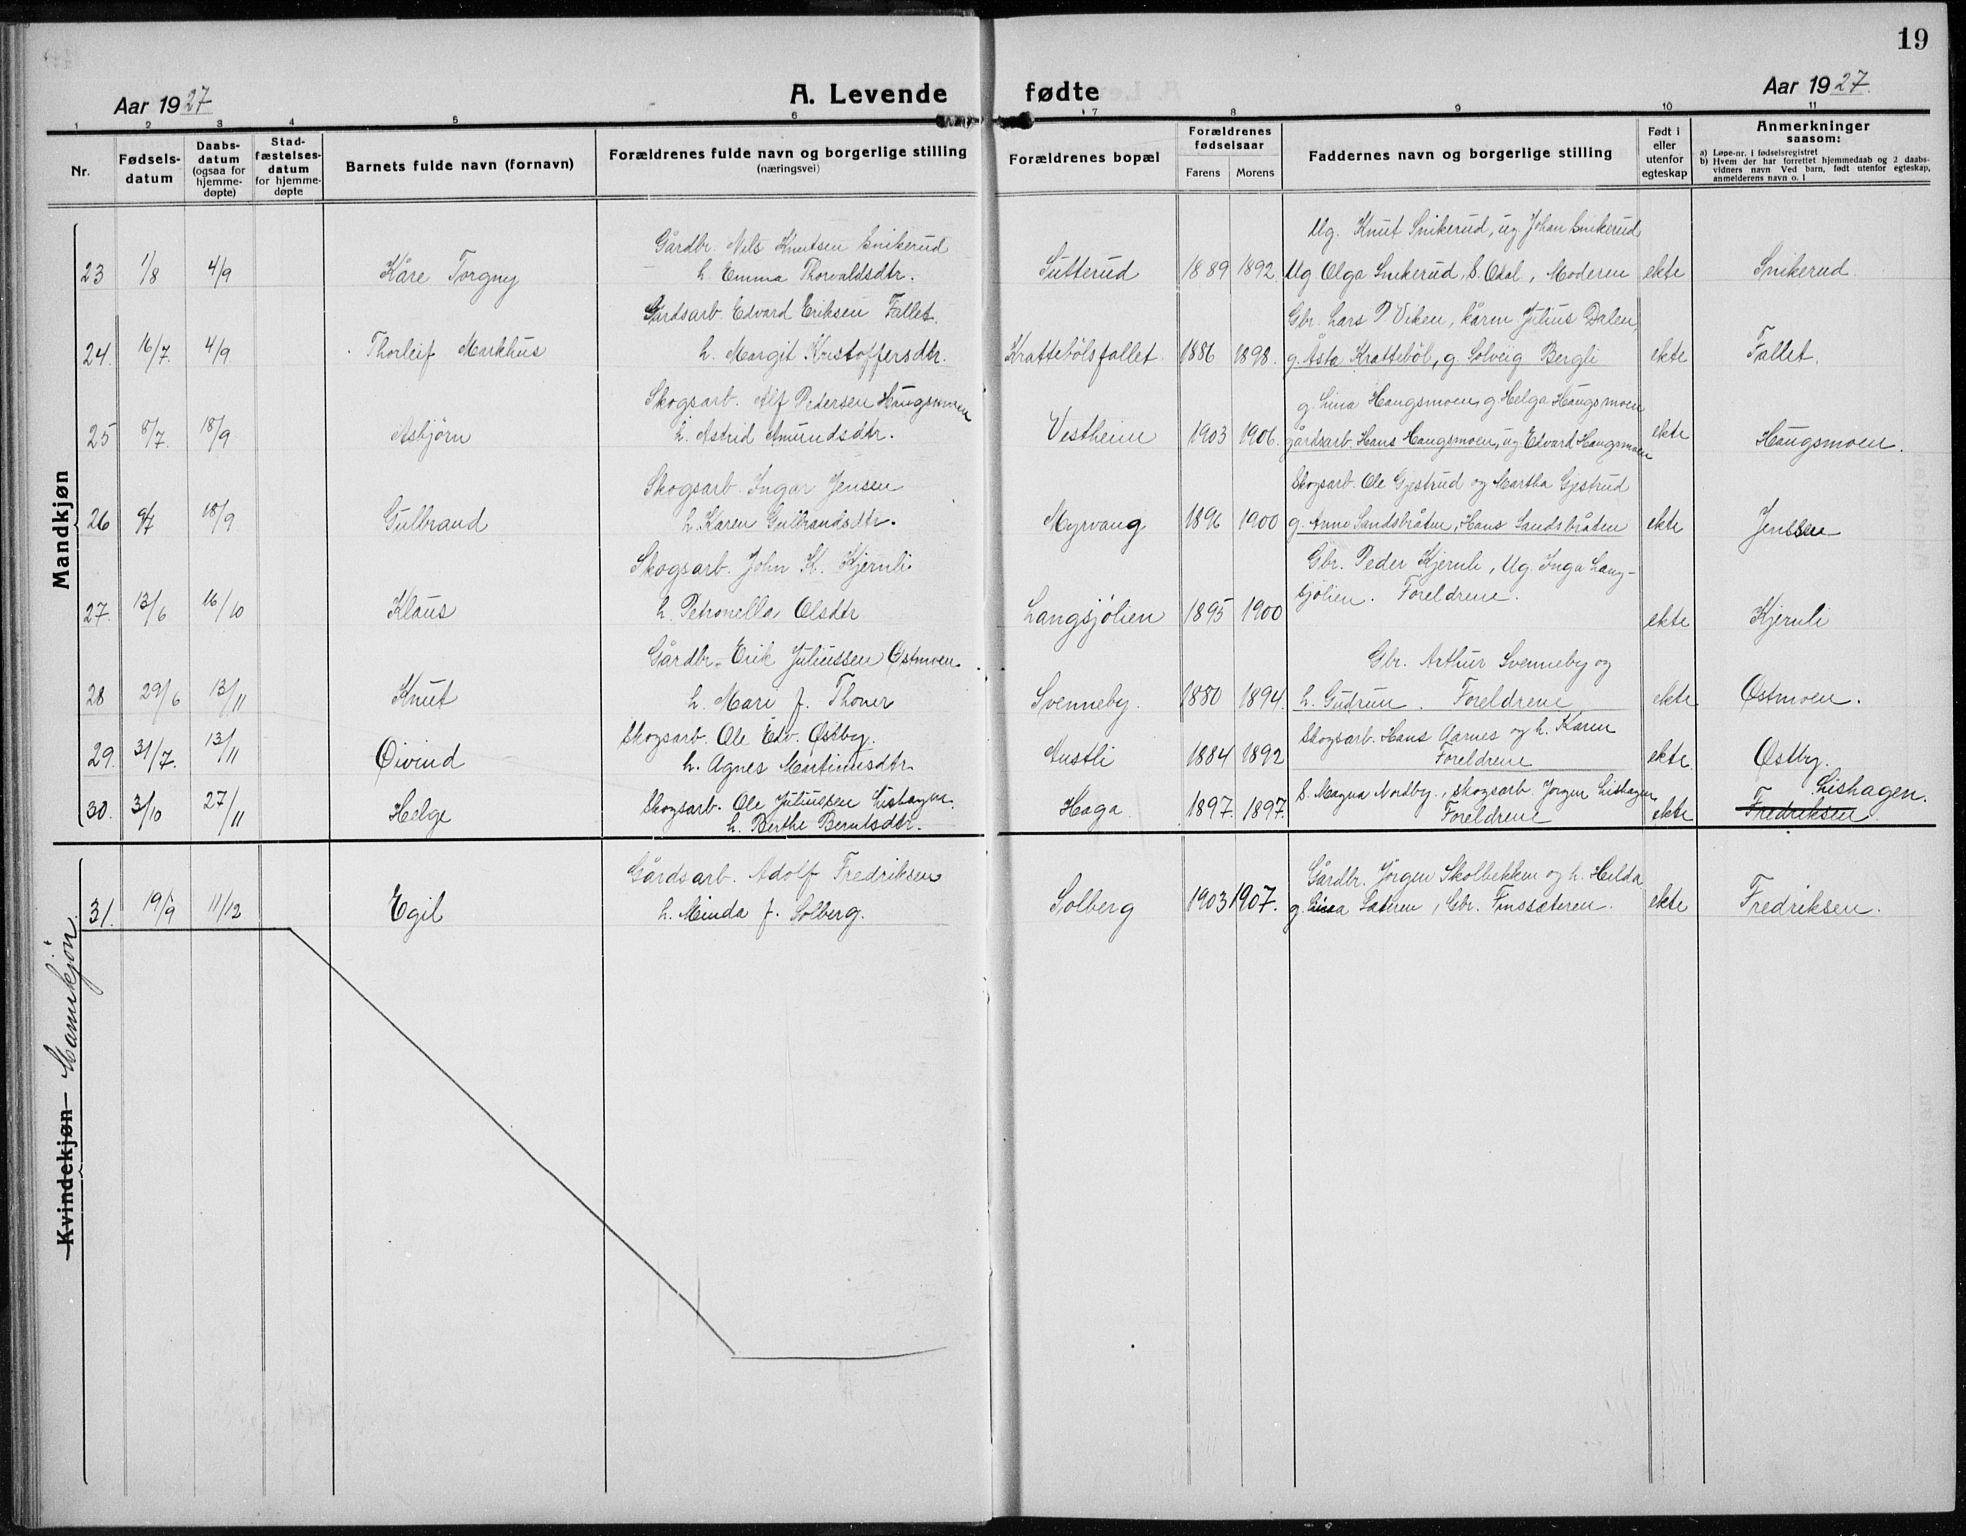 19
Aar 1927
A. Levende fødte
Aar 1927.
1 2 3 4 5 6 7 8 9 10 11
Nr.
Fødsels-
datum
Daabs-
datum
(ogsaa for
hjemme-
døpte)
Stad-
fæstelses-
datum
for hjemme-
døpte
Barnets fulde navn (fornavn)
Forældrenes fulde navn og borgerlige stilling
(næringsvei)
Forældrenes bopæl
Forældrenes
fødselsaar
Farens Morens
Faddernes navn og borgerlige stilling
Født i
eller
utenfor
egteskap
Anmerkninger
saasom:
a) Løpe-nr. i fødselsregistret
b) Hvem der har forrettet hjemmedaab og 2 daabs-
vidners navn Ved barn, født utenfor egteskap,
anmelderens navn o. l
Mandkjøn
Gårdbr. Nels Knutsen Snikerud Ug. Knut Snikerud, ug Johan Snikerud
23 1/8 4/9 Kåre Torgny h. Emma Thorvaldsdtr. Sutterud 1889 1892. Ug Olga Snikerud, S. Odal, Moderen ekte Snikerud.
Gårdsarb. Edvard Eriksen Fallet. Gbr. Lars P. Viken, Julius Dalen,
24. 16/7. 4/9 Thorleif Markhus h. Margit Kristoffersdtr. Krattebølsfallet. 1886 1898. g. Åsta Krattebøl, g. Solveig Bergli ekte Fallet.
Skogsarb. Alf Pedersen Haugsmoen g. Lina Haugsmoen, g Helga Haugsmoen
25 8/7. 18/9 Asbjørn h. Astrid Amundsdtr. Vestheim 1903 1906. gårdsarb. Hans Haugsmoen, ug Edvard Haugsmoen ekte Haugsmoen.
Skogsarb. Ingar Jensen Skogsarb. Ole Gjestrud og Martha Gjestrud
26 9/7 18/9 Gulbrand h. Karen Gulbrandsdtr. Myrvang 1896 1900 g. Anne Sandsbråten, Hans Sandsbråten ekte Jenssen
Skogsarb. John K. Kjernli Gbr. Peder Kjernli, Ug. Inga Lang-
sjølien. Foreldrene.
27. 13/6 16/10 Klaus h. Petronella Olsdtr Langsjølien 1895 1900 ekte Kjernli
Gårdbr. Erik Juliussen Østmoen. Gbr. Arthur Svenneby og
28 29/6 13/11 Knut h. Mari f. Thoner Svenneby. 1880 1894. h. Gudrun. Foreldrene ekte Østmoen.
Skogsarb. Ole Edv. Østby. Skogsarb. Hans Aarnes og h. Karen
29. 31/7. 13/11 Øivind h. Agnes Martinusdtr. Austli 1884 1892 Foreldrene ekte. Østby.
Skogsarb. Ole Juliussen Lishagen. S. Magna Nordby., skogsarb. Jørgen Lishagen, Lishagen.
30. 3/10 27/11 Helge h. Berthe Berntsdtr. Haga. 1897. 1897. Foreldrene ekte Fredriksen
Kvindekjøn Mannkjøn.
Gårdsarb. Adolf Fredriksen Gårdbr. Jørgen Skolbekken og h. Hilda
31. 19/9 11/12 Egil h. Minda f. Solberg. Solberg 1903 1907. g. Lina Sæteren, Chr. Finssæteren. ekte Fredriksen.